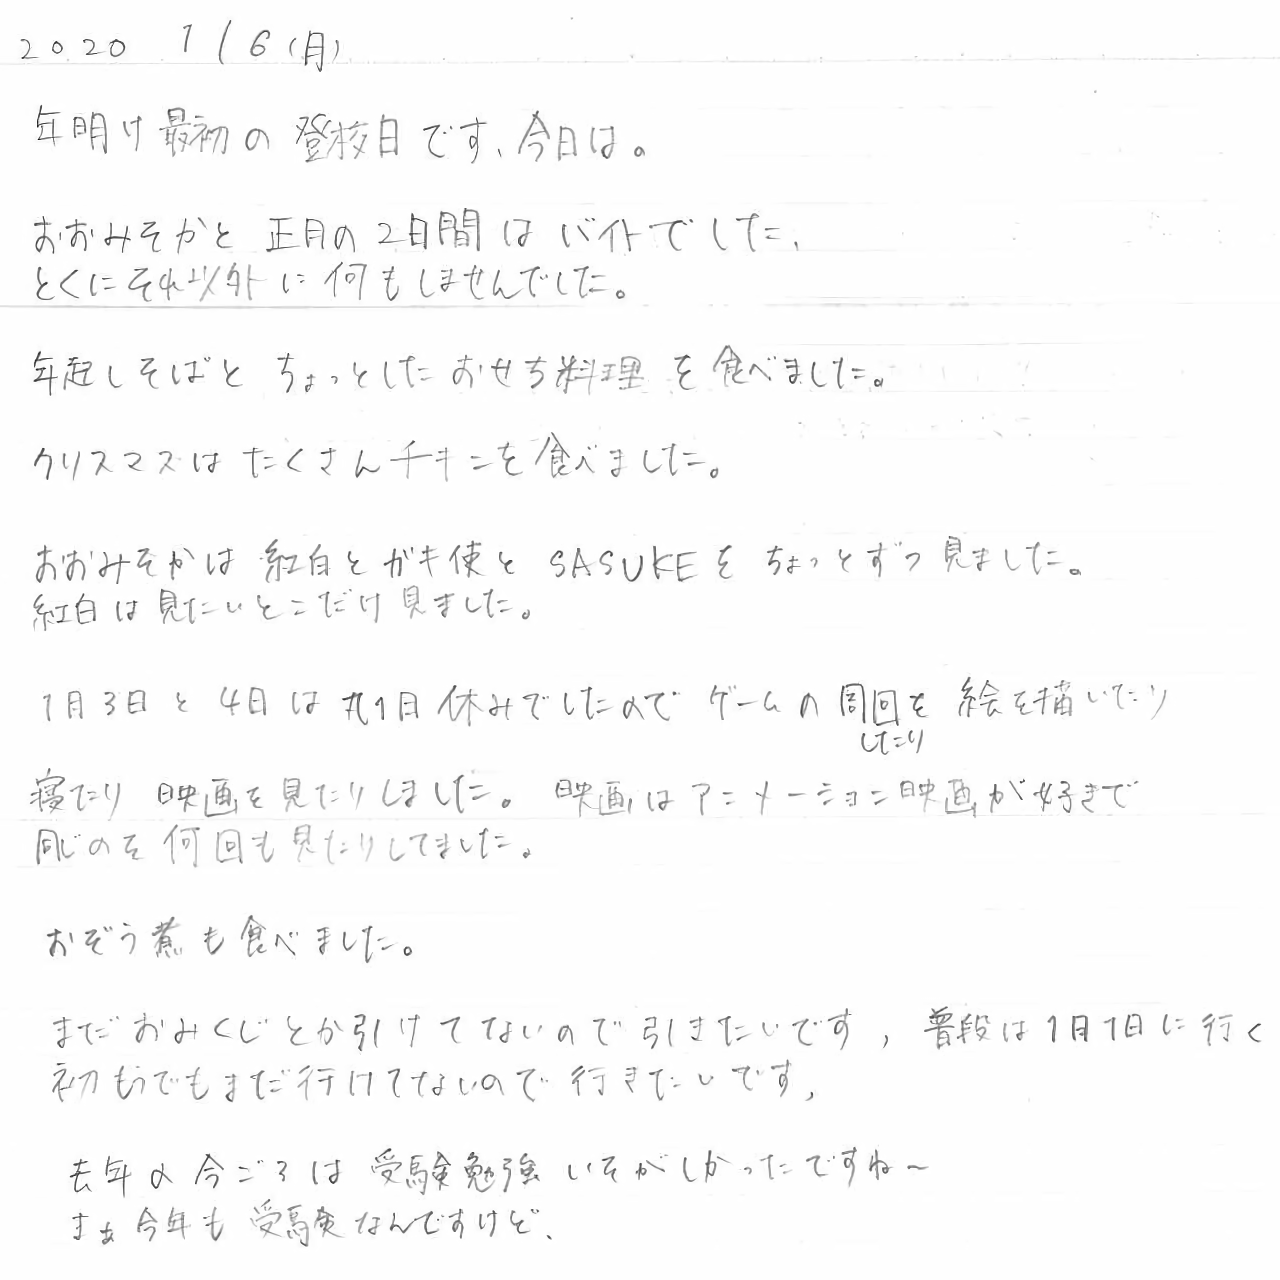 2020 1/6(月)
年明け最初の登校日です、今日は。
おおみそかと正月の2日間はバイトでした、
とくにそれ以外に何もしませんでした。
年越しそばとちょっとしたおせち料理を食べました。
クリスマスはたくさんチキンを食べました。
おおみそかは紅白とガキ使とSASUKEをちょっとずつ見ました。
紅白は見たいとこだけ見ました。
1月3日と4日は丸1日休みでしたのでゲームの周回を絵を描いたり
したり
寝たり映画を見たりしました。映画はアニメーション映画が好きで
同じのを何回も見たりしてました。
おぞう煮も食べました。
まだおみくじとか引けてないので引きたいです,普段は1月1日に行く
初もうでもまだ行けてないので行きたいです,
去年の今ごろは受験勉強いそがしかったですね〜
まぁ今年も受験なんですけど、